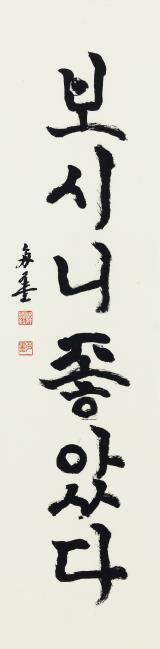 보시니좋았다